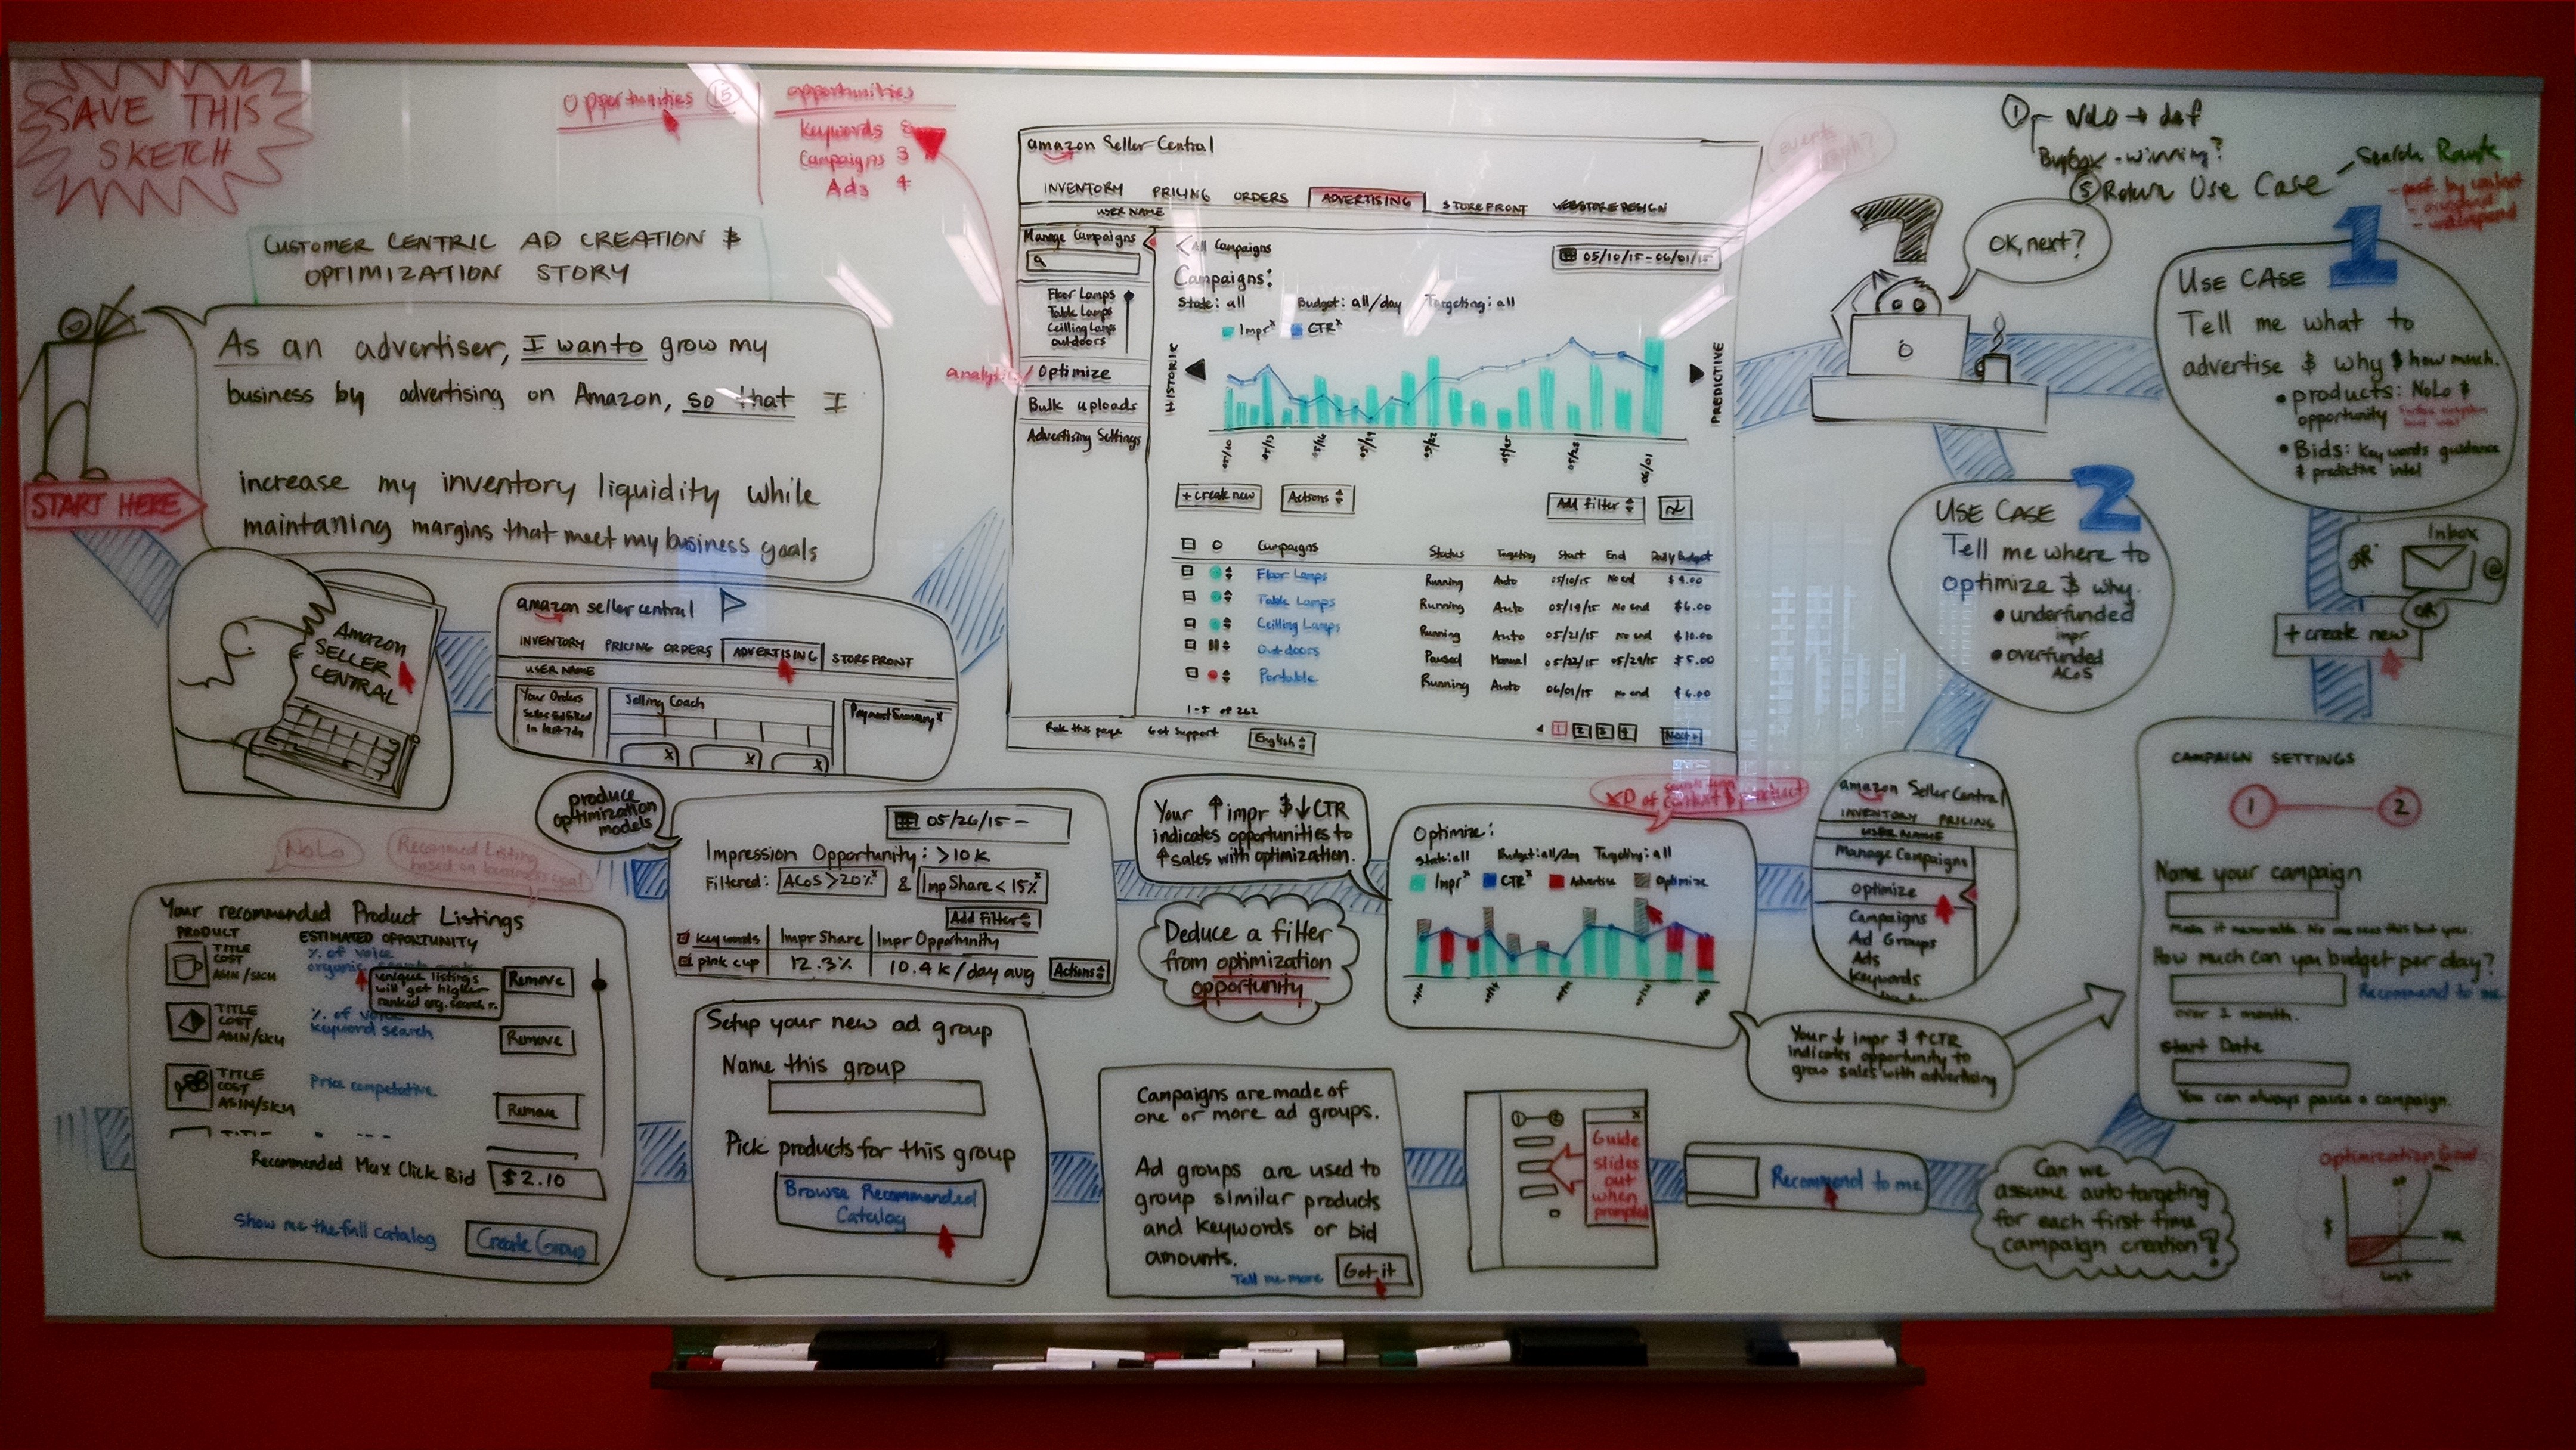 SAVE THIS
SKETCH
Opportunities 15
opportunities
Keywords 8
Campaigns 3
Ads 4
CUSTOMER CENTRIC AD CREATION &
OPTIMIZATION STORY
As an advertiser, I wanto grow my
business by advertising on Amazon, so that I
increase my inventory liquidity while
maintaning margins that meet my business goals
START HERE
Amazon
SELLER
CENTRAL
amazon seller central
INVENTORY PRICING ORDERS ADVERTISING STOREFRONT
USER NAME
Your Orders
In last 7 day
Selling Coach
Payment Summary
amazon Seller Central
INVENTORY PRICING ORDERS ADVERTISING STOREFRONT WEBSTORE DESIGN
USER NAME
Manage Campaigns
Floor Lamps
Table Lamps
Ceilling Lamps
outdoors
Optimize
Bulk uploads
Advertising Settings
All Campaigns
05/10/15-06/01/15
Campaigns:
State: all Budget: all/day Targeting: all
Impr x CTR x
HISTORIC
PREDICTIVE
+ create new Actions Add filter
Campaigns Status Targeting Start End Daily Budget
Floor Lamps Running Auto 05/10/15 No end $9.00
Table Lamps Running Auto 05/19/15 No end $6.00
Ceilling Lamps Running Auto 05/21/15 no end $10.00
Outdoors Paused Manual 05/22/15 05/29/15 $5.00
Portable Running Auto 06/01/15 no end $6.00
1-5 of 262
Rate this page Get Support English
1 2 3 4 Next
1 NoLo → def
Buybox - winning?
5 Return Use Case
Search Rank
OK, next?
USE CASE 1
Tell me what to
advertise & why & how much.
• products: NoLo &
opportunity
• Bids: Key words guidance
& predictive intel
USE CASE 2
Tell me where to
optimize & why.
• underfunded
impr
• overfunded
ACoS
OR
Inbox
@
OR
+ create new
CAMPAIGN SETTINGS
1 2
Name your campaign
Make it memorable. No one sees this but you.
How much can you budget per day?
Recommend to me
over 1 month.
Start Date
You can always pause a campaign.
amazon Seller Central
INVENTORY PRICING
USER NAME
Manage Campaigns
Optimize
Campaigns
Ad Groups
Ads
Keywords
Optimize:
State: all Budget: all/day Targeting: all
Impr x CTR x Advertise Optimize
Your ↓ impr & ↑ CTR
indicates opportunity to
grow sales with advertising
Your ↑ impr & ↓ CTR
indicates opportunities to
↑ sales with optimization.
Deduce a filter
from optimization
opportunity
produce
optimization
models
05/26/15 -
Impression Opportunity: >10K
Filtered: ACoS >20% x & Imp Share < 15% x
Add Filter
Keywords Impr Share Impr Opportunity
pink cup 12.3% 10.4K/day avg Actions
NoLo
Recommed Listing
based on business goal
Your recommended Product Listings
PRODUCT ESTIMATED OPPORTUNITY
TITLE
COST
ASIN/SKU
% of voice
unique listings
will get higher
ranked org. search r.
Remove
TITLE
COST
ASIN/SKU
% of voice
keyword search
Remove
TITLE
COST
ASIN/SKU
Price competative
Remove
Recommended Max Click Bid $2.10
Show me the full catalog Create Group
Setup your new ad group
Name this group
Pick products for this group
Browse Recommended
Catalog
Campaigns are made of
one or more ad groups.
Ad groups are used to
group similar products
and keywords or bid
amounts.
Tell me more Got it
1 2
Guide
slides
out
when
prompted
Recommend to me
Can we
assume auto-targeting
for each first time
campaign creation?
Optimization Goal
$